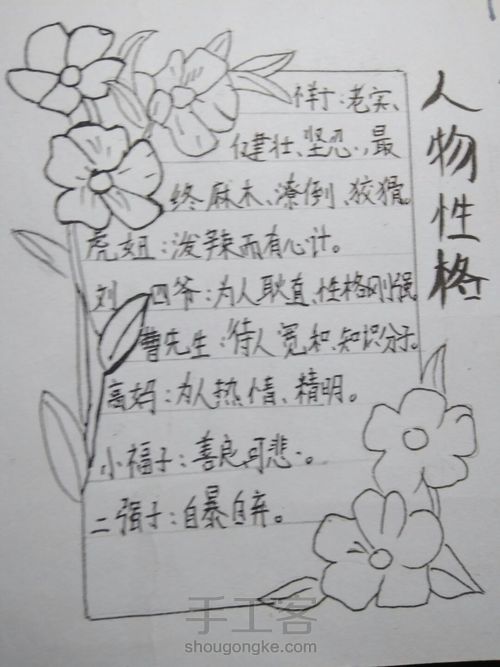 人物性格
祥子：老实、
健壮、坚忍、，最
终麻木、潦倒、狡猾。
虎妞：泼辣而有心计。
刘四爷：为人耿直、性格刚强
曹先生：待人宽和、知识分子。
高妈：为人热情、精明。
小福子：善良可悲。
二强子：自暴自弃。
手工客
shougongke.com